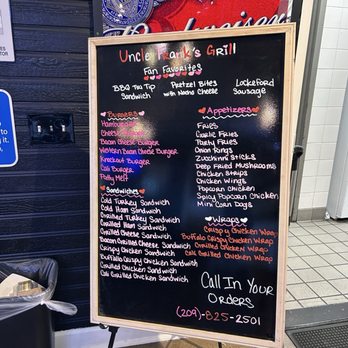 Budweiser
Uncle Frank's Grill
Fan Favorites
BBQ Tri Tip Sandwich
Pretzel Bites with Nacho Cheese
Lockeford Sausage
Burgers
Hamburger
Cheese Burger
Bacon Cheese Burger
Western Bacon Cheese Burger
Knockout Burger
Cali Burger
Patty Melt
Sandwiches
Cold Turkey Sandwich
Cold Ham Sandwich
Grilled Turkey Sandwich
Grilled Ham Sandwich
Grilled Cheese Sandwich
Bacon Grilled Cheese Sandwich
Crispy Chicken Sandwich
Buffalo Crispy Chicken Sandwich
Grilled Chicken Sandwich
Cali Grilled Chicken Sandwich
Appetizers
Fries
Garlic Fries
Party Fries
Onion Rings
Zucchini Sticks
Deep Fried Mushrooms
Chicken Strips
Chicken Wings
Popcorn Chicken
Spicy Popcorn Chicken
Mini Corn Dogs
Wraps
Crispy Chicken Wrap
Buffalo Crispy Chicken Wrap
Grilled Chicken Wrap
Cali Grilled Chicken Wrap
Call In Your
Orders
(209)-825-2501